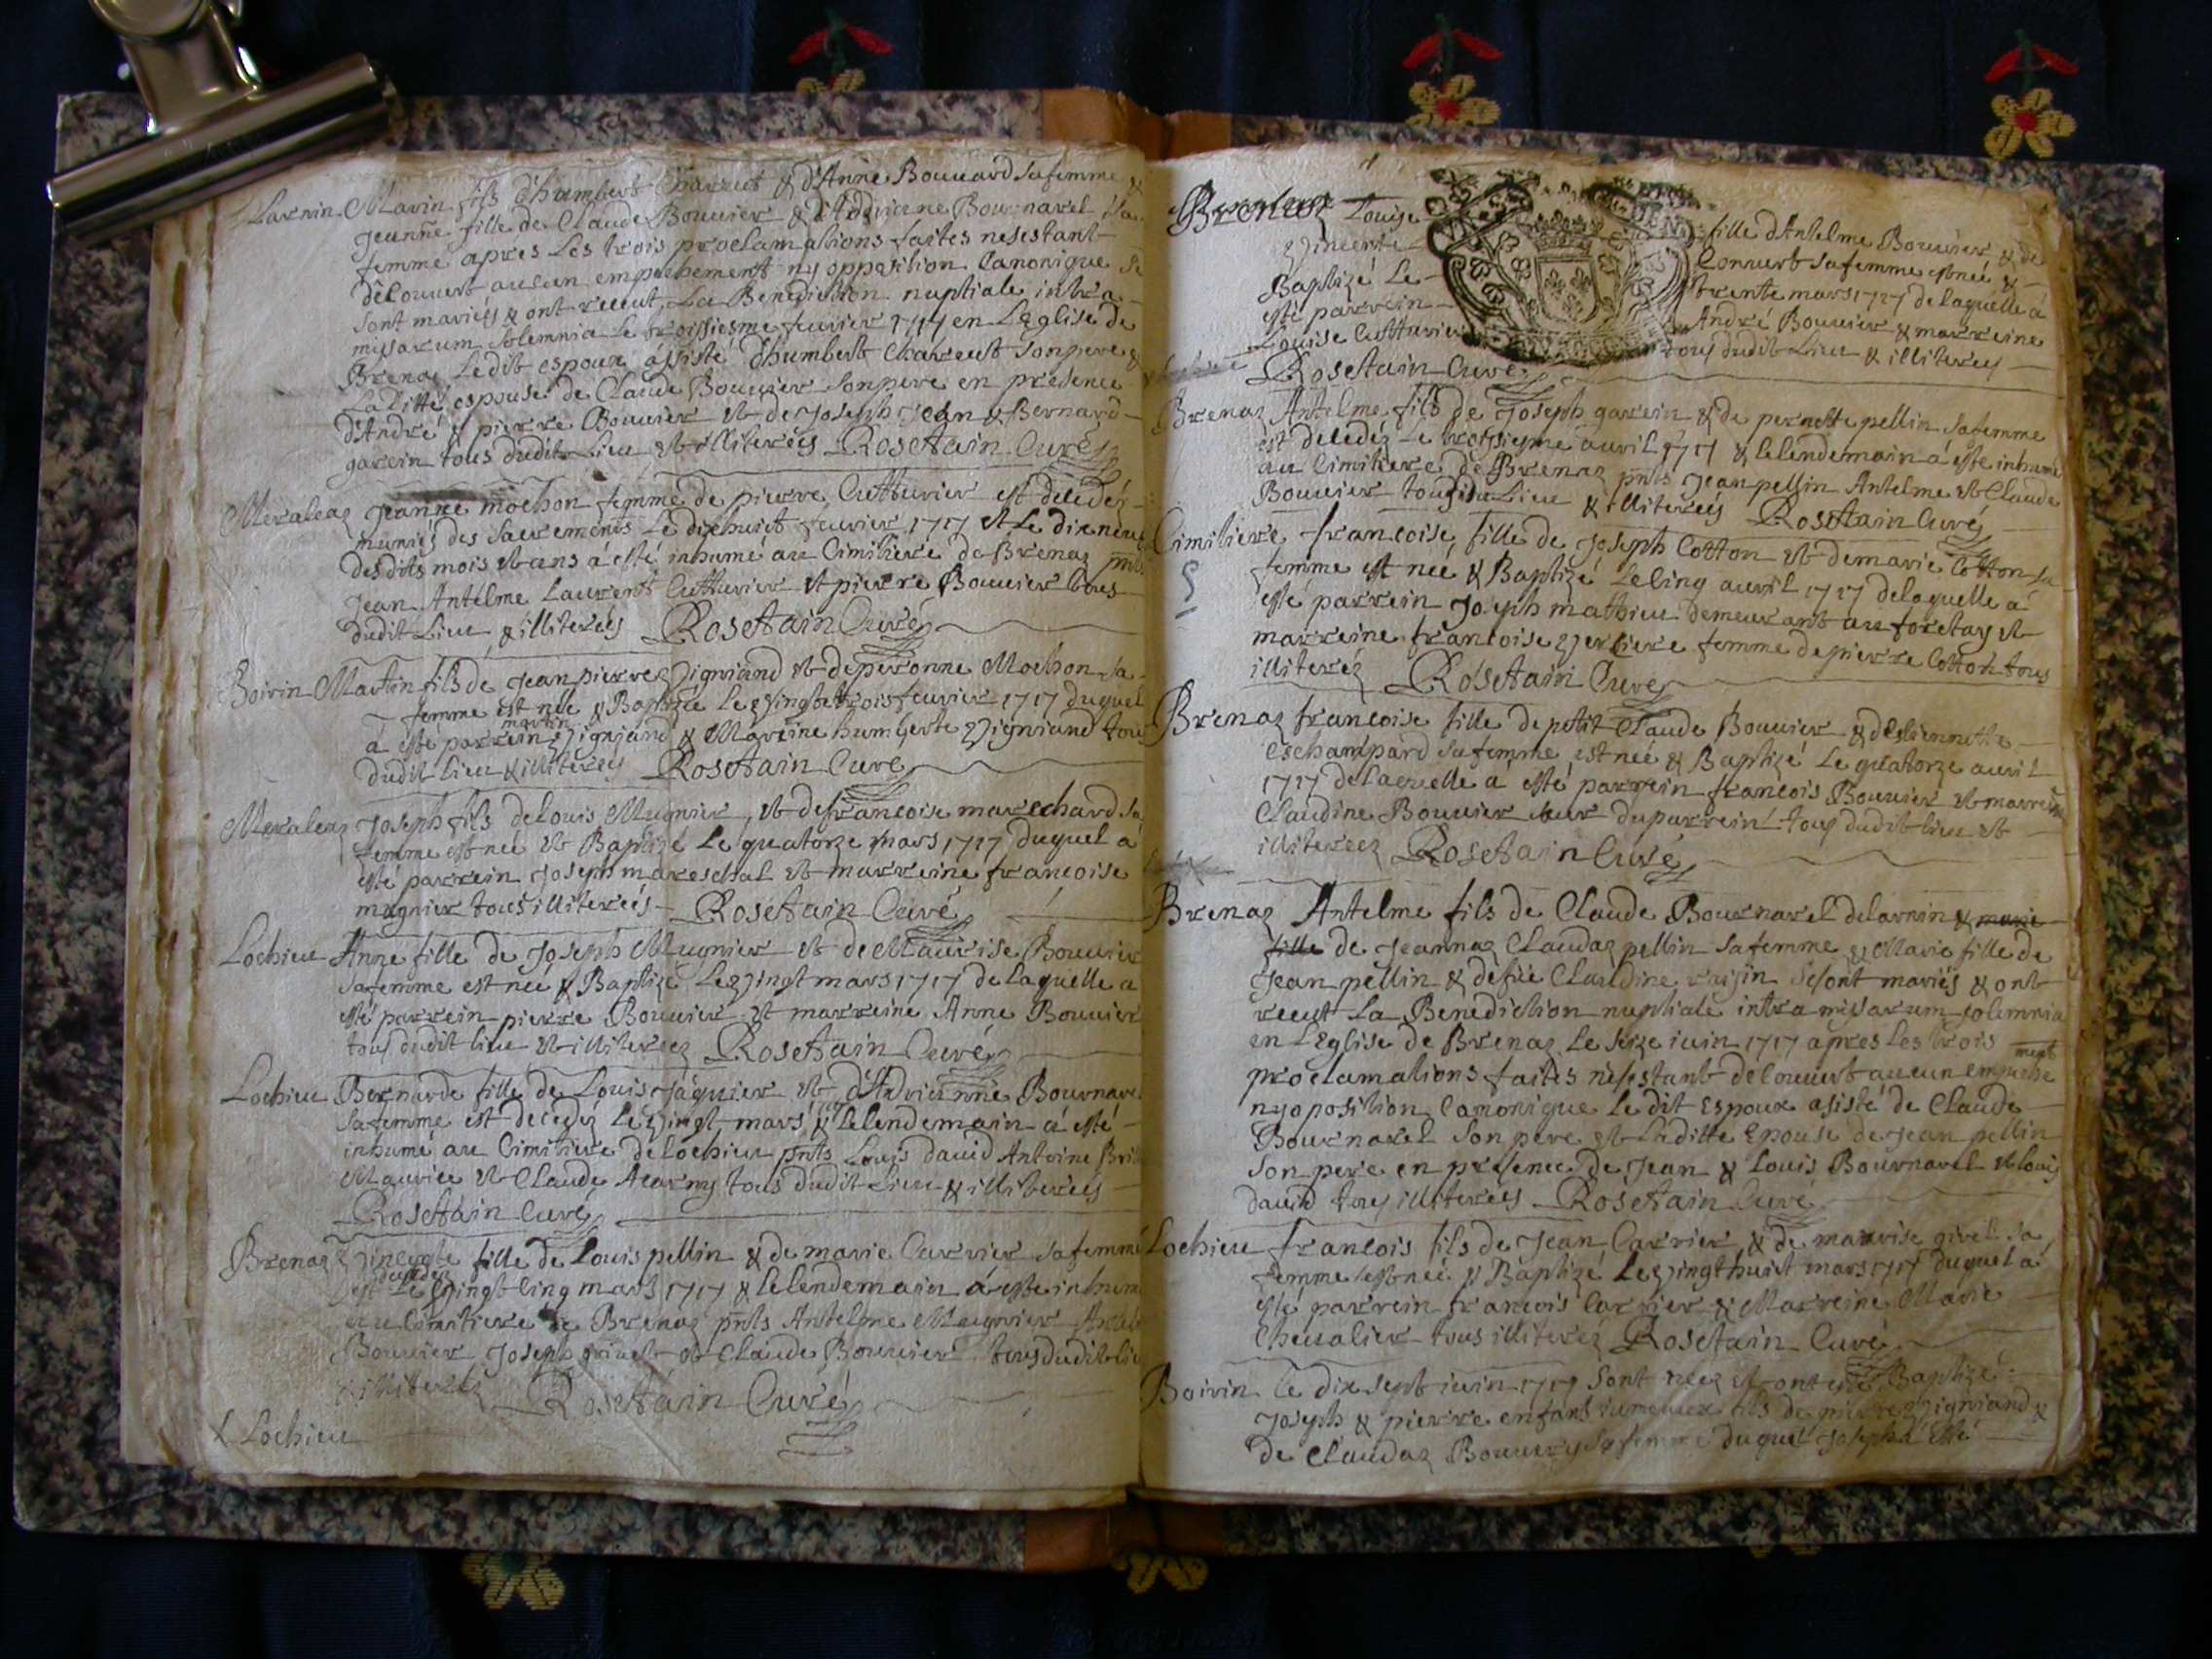 Larnin Marin fils d'humbert Charcut & d'Anne Bouuard sa femme &
Jeanne fille de Claude Bouuier & d'Adrianne Bournarel sa
femme apres les trois proclamations faites nesestant
découuert aucun empechement ny opposition Canonique se
sont mariés & ont receut La Benediction nuptiale intra
missarum solemnia le troissiesme feurier 1717 en LEglise de
Brenaz Ledit espoux assisté d'humbert Charcut son pere &
La ditte espouse de Claude Bouuier son pere en presence
d'André & pierre Bouuier et de Joseph Jean & Bernard
garein tous dudit Lieu et illiterées Rosetain Curé
Meraleaz Jeanne mochon femme de pierre Cutturier est decedéz
muniés des Sacrements Le dixhuict feurier 1717 et Le dixneuf
desdits mois et ans á esté inhumé au Cimitiere de Brenaz pnts
Jean Antelme Laurent Cutturier et pierre Bouuier tous
dudit Lieu & illiterées Rosetain Curé
Boirin Martin fils de Jean pierre Vigniand et de peronne Mochon sa
femme est née & Baptizé le Vingt trois feurier 1717 duquel
martin
á esté parrein Vigniand & Marreine humberte Vigniand tous
dudit lieu & illiterey Rosetain Curé
Meraleaz Joseph fils de Louis Mugnier, et de francoise marechard sa
femme est neé et Baptizé Le quatorze mars 1717 duquel á
esté parrein Joseph mareschal et marreine francoise
mugnier tous illiterées Rosetain Curé
Lochieu Anne fille de Joseph Mugnier et de Maurise Bouuier
sa femme est neé & Baptizé Le Vingt mars 1717 de Laquelle a
esté parrein pierre Bouuier et marreine Anne Bouuier
tous dudit lieu et illitereez Rosetain Curé
Lochieu Bernarde fille de Louis Jaquier et d'Adrienne Bournarel
sa femme est decedéz Le Vingt mars & Lelendemain á esté
inhumé au Cimitiere de Lochieu pnts Louis dauid Antoine
Maurice et Claude tous dudit Lieu & illiterées
Rosetain Curé
Brenaz Vincente fille de Louis pellin & de marie Carrier sa femme
decedéz
est le Vingt cinq mars 1717 & lelendemain á esté inhumé
au Cimitiere de Brenaz pnts Antelme Mugnier
Bouuier Joseph et Claude Bouuier tous dudit lieu
& illiterez Rosetain Curé
Lochieu
Brenaz Louise fille d'Antelme Bouuier & de
Vincente Conuert sa femme est neé &
Baptizé Le trente mars 1717 de laquelle á
esté parrein André Bouuier & marreine
Louise Cutturier tous dudit Lieu & illiterey
Rosetain Curé
Brenaz Antelme fils de Joseph garein & de pernette pellin sa femme
est decedéz Le troisiyme auril 1717 & lelendemain á esté inhumé
au Cimitiere de Brenaz pnts Jean pellin Antelme et Claude
Bouuier tous du Lieu & illiterées Rosetain Curé
Cimiliere francoise fille de Joseph Cotton et de marie Cotton sa
femme est neé & Baptizé Le Cinq auril 1717 delaquelle á
esté parrein Joseph mathieu demeurant au foretay et
marreine francoise Verliere femme de pierre Cotton tous
illiteréz Rosetain Curé
Brenaz francoise fille de petit Claude Bouuier & d'estiennette
Eschampard sa femme est neé & Baptizé Le quatorze auril
1717 de Laquelle á esté parrein francois Bouuier et marreine
Claudine Bouuier seur du parrein tous dudit lieu et
illitereez Rosetain Curé
Brenaz Antelme fils de Claude Bournarel delarnin & marie
fille de Jeannaz Claudaz pellin sa femme & Marie fille de
Jean pellin & de feüe Claudine se sont mariés & ont
receut La Benediction nuptiale intra missarum solemnia
en LEglise de Brenaz Le Seize iuin 1717 apres Les trois
ment
proclamations faites nesestant decouuert aucun empeche
ny oposition Canonique Le dit Espoux asisté de Claude
Bournarel Son pere et Laditte Epouse de Jean pellin
Son pere en présence de Jean & Louis Bournarel et louis
dauid tous illiterées Rosetain Curé
Lochieu francois fils de Jean Carrier & de maurise givel sa
femme est neé & Baptizé Le Vingt huict mars 1717 duquel á
esté parrein francois Carrier & Marreine Marie
Cheualier tous illiteréz Rosetain Curé
Boirin le dix sept iuin 1717 Sont neez et ont esté Baptizé
Joseph & pierre enfans iumeaux fils de pierre Vigniand &
de Claudaz Bouuery sa femme duquel Joseph á esté